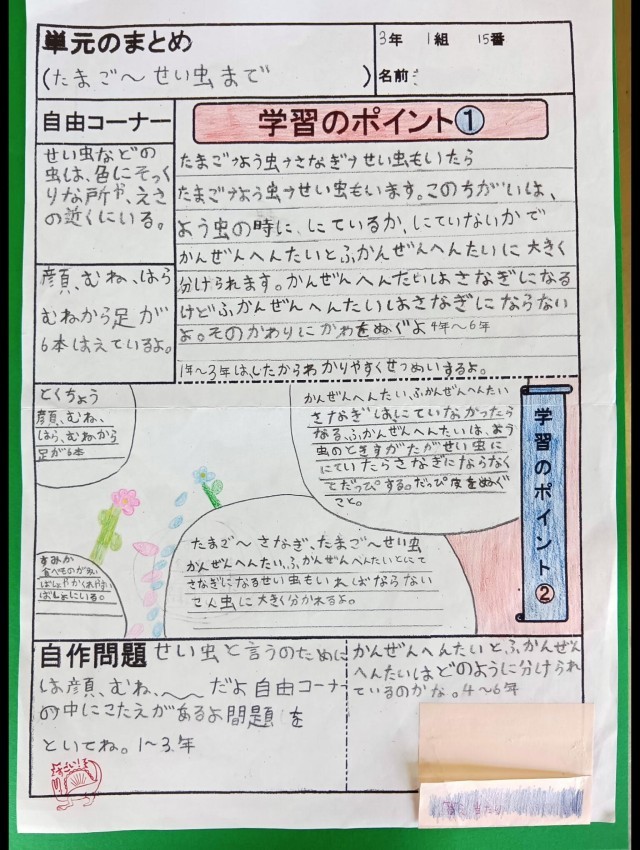 単元のまとめ
(たまご〜せい虫まで)
3年 1組 15番
名前
自由コーナー
せい虫などの
虫は、色にそっく
りな所や、えさ
の近くにいる。
顔、むね、はら
むねから足が
6本はえているよ。
学習のポイント①
たまご→よう虫→さなぎ→せい虫もいたら
たまご→よう虫→せい虫もいます。このちがいは、
よう虫の時に、にているか、にていないかで
かんぜんへんたいとふかんぜんへんたいに大きく
分けられます。かんぜんへんたいはさなぎになる
けどふかんぜんへんたいはさなぎにならない
よ。そのかわりにかわをぬぐよ 4年〜6年
1年〜3年はしたからわかりやすくせつめいするよ。
とくちょう
顔、むね、
はら、むねから
足が6本
かんぜんへんたい、ふかんぜんへんたい
さなぎはにていなかったら
なる、ふかんぜんへんたいは、よう
虫のときすがたがせい虫に
にていたらさなぎにならなく
てだっぴする。だっぴ皮をぬぐ
こと。
学習のポイント②
すみか
食べものが多い
ばしょやかくれやすい
ばしょにいる。
たまご〜さなぎ、たまご〜せい虫
かんぜんへんたい、ふかんぜんへんたいとにて
さなぎになるせい虫もいればならない
こん虫に大きく分かれるよ。
自作問題
せい虫と言うのために
は顔、むね、〜〜だよ自由コーナー
の中にこたえがあるよ問題を
といてね。1〜3年
かんぜんへんたいとふかんぜん
へんたいはどのように分けられ
ているのかな。4〜6年